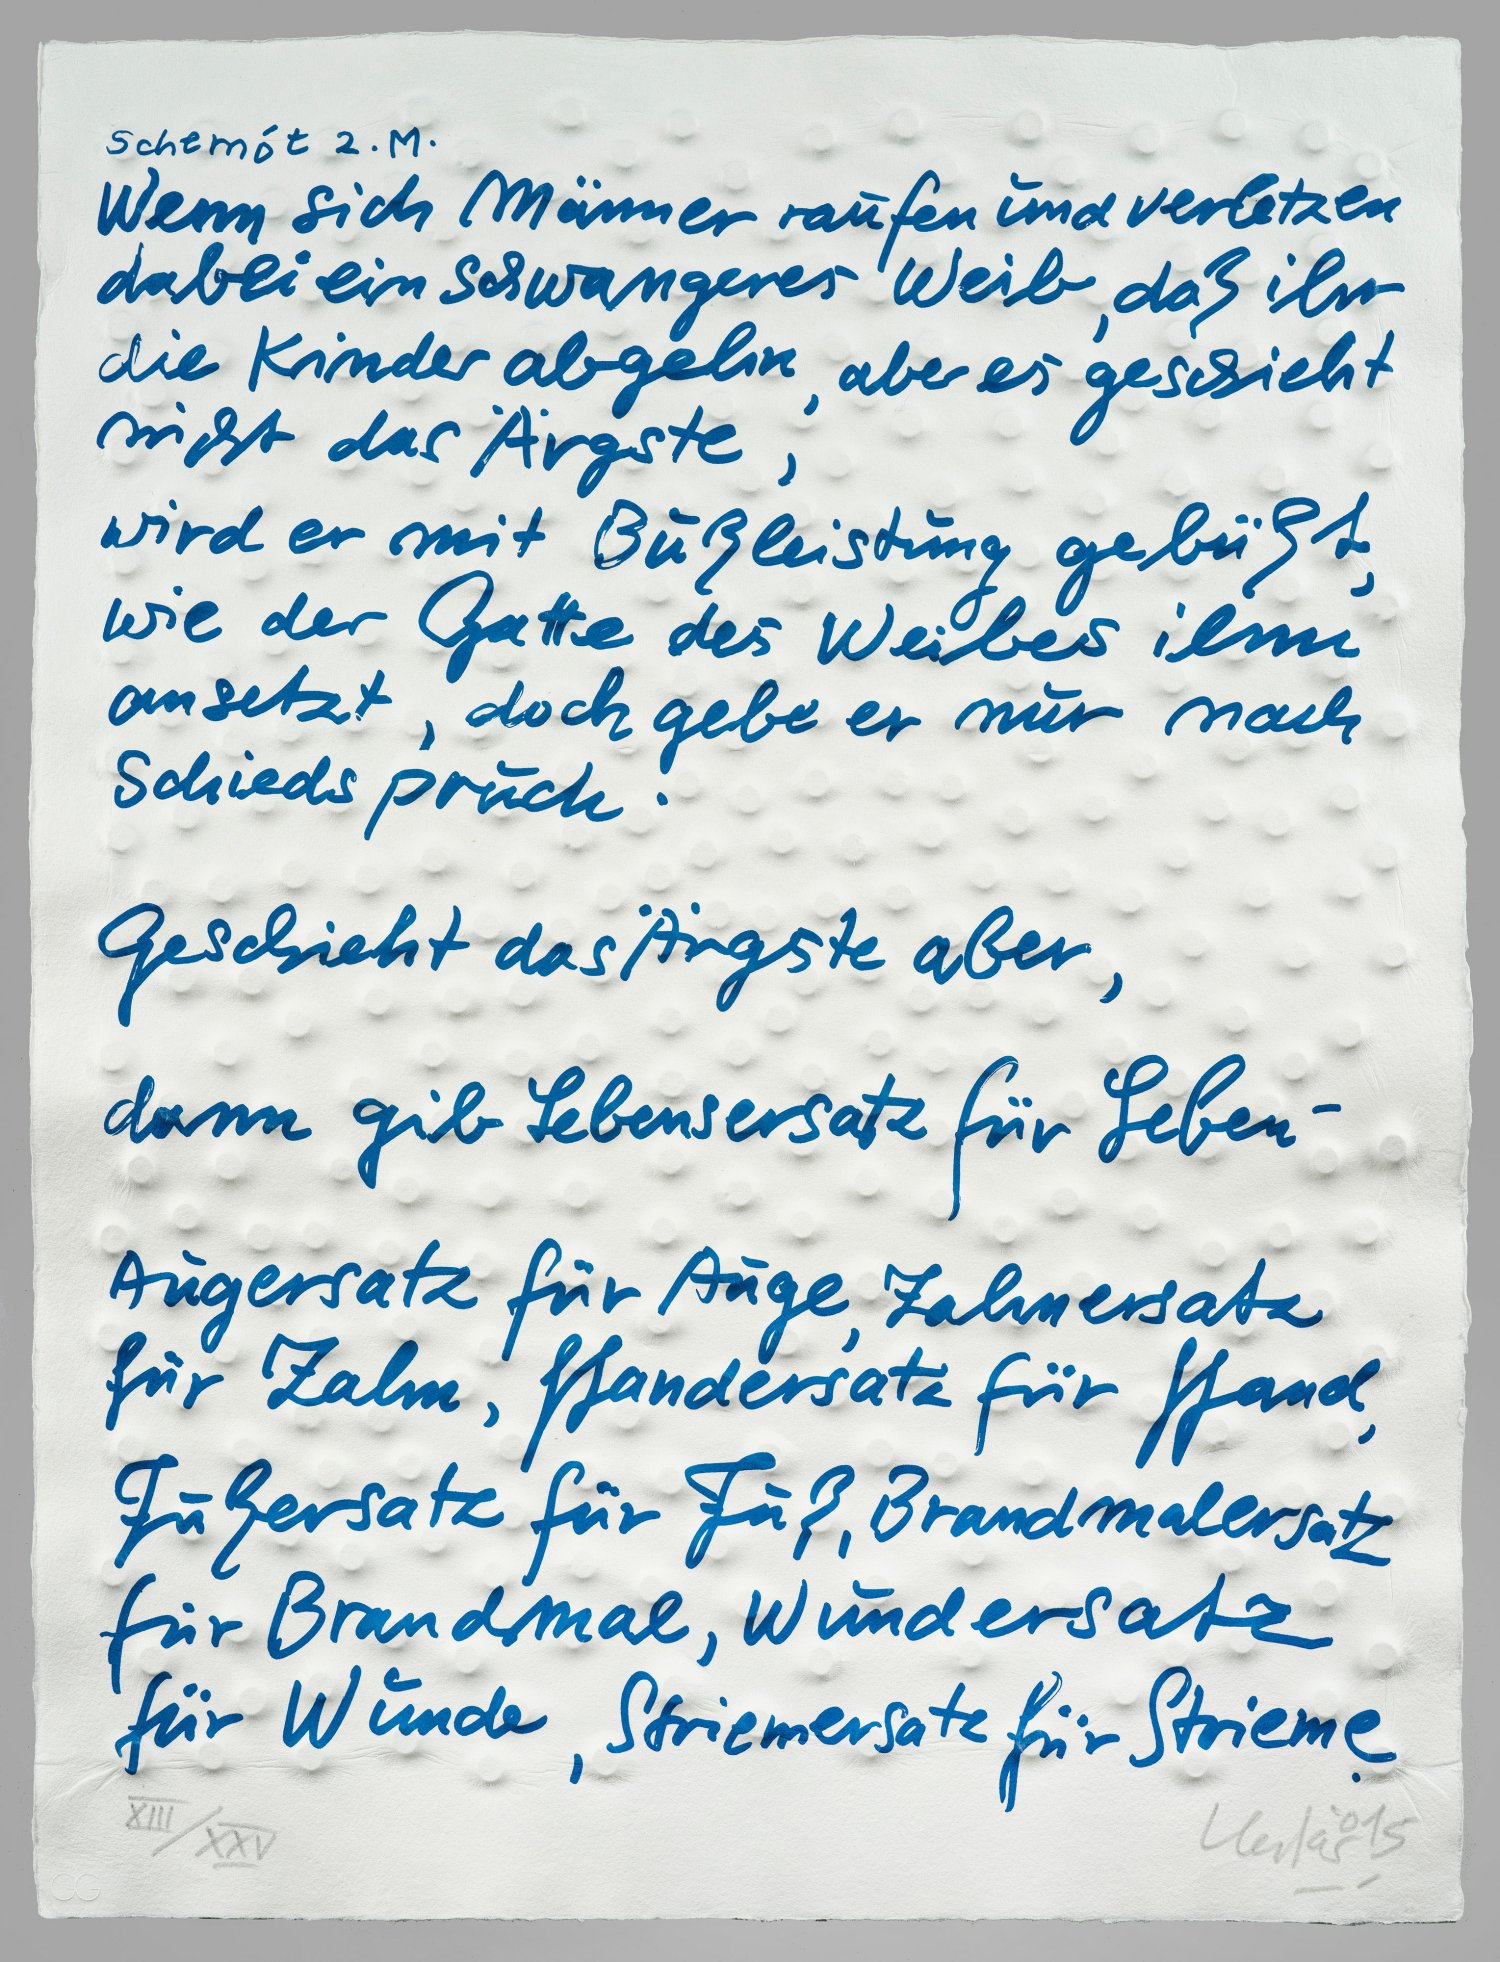 Schemót 2.M.
Wenn sich Männer raufen und verletzen
dabei ein schwangeres Weib, daß ihr
die Kinder abgehn, aber es geschieht
nicht das Ärgste,
wird er mit Bußleistung gebüßt,
wie der Gatte des Weibes ihm
ansetzt, doch gebe er nur nach
Schiedspruch.
Geschieht das Ärgste aber,
dann gib Lebensersatz für Leben-
Augersatz für Auge, Zahnersatz
für Zahn, Handersatz für Hand,
Fußersatz für Fuß, Brandmalersatz
für Brandmal, Wundersatz
für Wunde, Striemersatz für Strieme.
XIII/XXV
015
CG